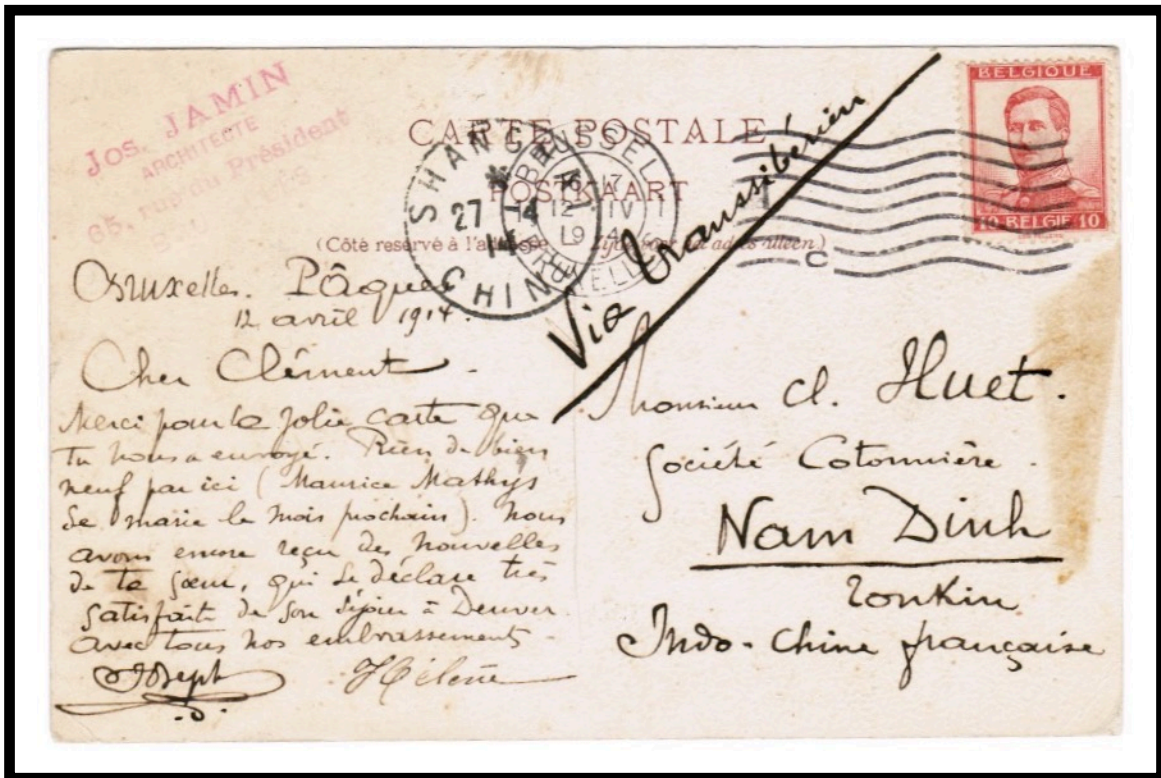 Jos. JAMIN
ARCHITECTE
65, rue du Président
CARTE POSTALE
POSTKAART
(Côté reservé à l'adresse
Zijde voor het adres alleen.)
SHANGHAI
27 4
14
CHINE
BRUSSEL
17
12 IV
19 14
BRUXELLES
C
BELGIQUE
10 BELGIE 10
Via transsibérien
Bruxelles. Pâques
12 avril 1914.
Cher Clément.
Merci pour la jolie carte que
tu nous a envoyé. Rien de bien
neuf par ici (Maurice Mathys
se marie le mois prochain). Nous
avons encore reçu des nouvelles
de ta soeur, qui se déclare très
satisfaite de son séjour à Denver.
Avec tous nos embrassements.
Joseph Hélène
Monsieur Cl. Huet.
Société Cotonnière.
Nam Dinh
Tonkin
Indo-Chine française